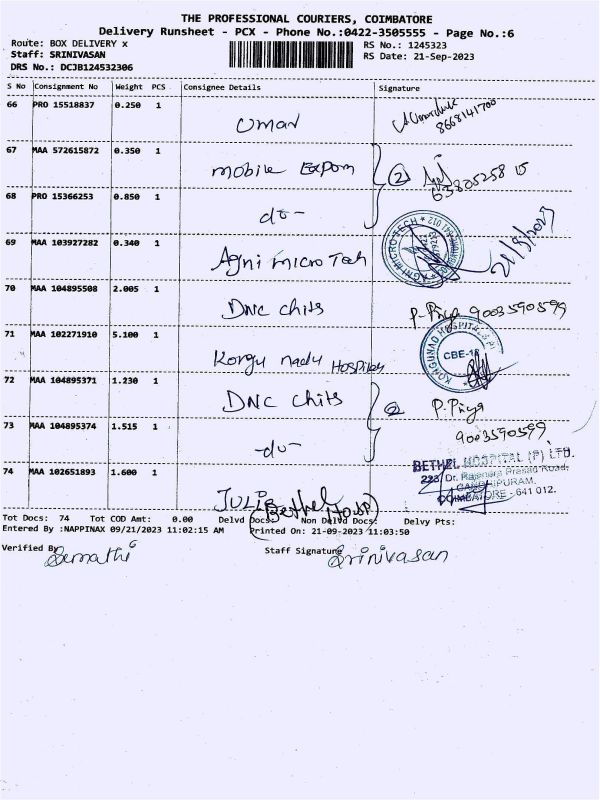 THE PROFESSIONAL COURIERS, COIMBATORE
Delivery Runsheet - PCX - Phone No.:0422-3505555 - Page No.:6
Route: BOX DELIVERY x
RS No.: 1245323
Staff: SRINIVASAN
RS Date: 21-Sep-2023
DRS No.: DCJB124532306
S No Consignment No Weight PCS Consignee Details Signature
66 PRO 15518837 0.250 1
Umar
8668141700
67 MAA 572615872 0.350 1
mobile Expom
2
68 PRO 15366253 0.850 1
do-
69 MAA 103927282 0.340 1
Agni micro Teh
AGNI MICRO TECH
21/9/2023
70 MAA 104895508 2.005 1
DNC chits
P-Priya 9003590599
71 MAA 102271910 5.100 1
Kongu nadu Hospitals
KONGUNAD HOSPITALS
CBE-12
72 MAA 104895371 1.230 1
DNC chits
2 P. Priya
9003590599
73 MAA 104895374 1.515 1
-do-
74 MAA 102651893 1.600 1
BETHEL HOSPITAL (P) LTD.
223, Dr. Rajendra Prasad Road,
GANDHIPURAM,
COIMBATORE - 641 012.
JULIB
(Bethel Hosp)
Tot Docs: 74 Tot COD Amt: 0.00 Delvd Docs: Non Delvd Docs: Delvy Pts:
Entered By :NAPPINAX 09/21/2023 11:02:15 AM Printed On: 21-09-2023 11:03:50
Verified By
Staff Signature Srinivasan